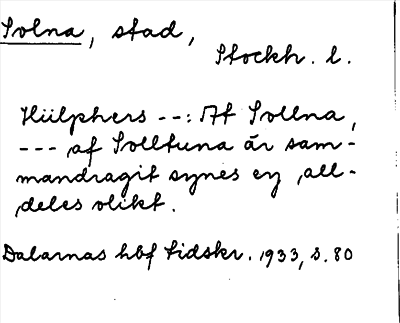 Solna, stad,
Stockh. l.
Hülphers --: At Sollna,
--- af Solltuna är sam-
mandragit synes ey all-
deles olikt.
Dalarnas hbf tidskr. 1933, s. 80